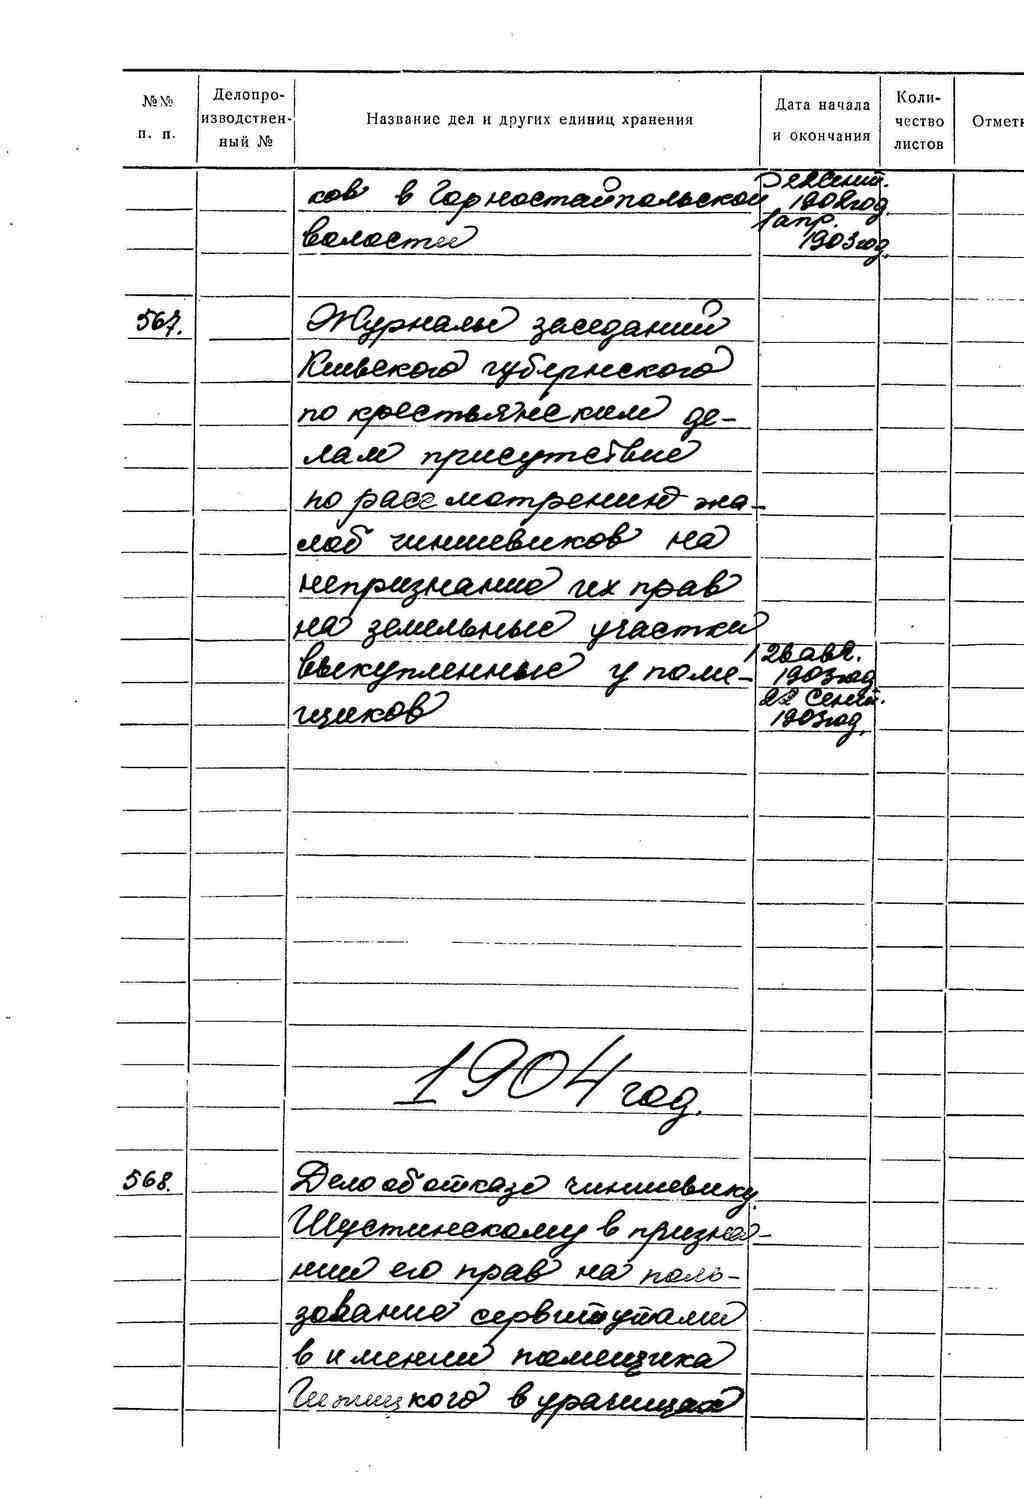 №№ п. п.
Делопро-
изводствен-
ный №
Название дел и других единиц хранения
Дата начала
и окончания
Коли-
чество
листов
Отметк
ков в Горностайпольской
волостей
22 Сент.
1902 год.
1 апр.
1903 год.
567.
Журналы заседаний
Киевского губернского
по крестьянским де-
лам присутствие
по рассмотрению жа-
лоб чиншевиков на
непризнание их прав
на земельные участки
выкупленные у поме-
щиков
26 авг.
1903 год
22 Сент.
1903 год.
1904 год.
568.
Дело об отказе чиншевику
Шустинскому в призна-
нии его прав на поль-
зование сервитутами
в имении помещика
в урочищах